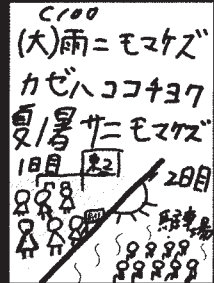 C100
(大)雨ニモマケズ
カゼハココチヨク
夏ノ暑サニモマケズ
1日目 東2
2日目
駐車場